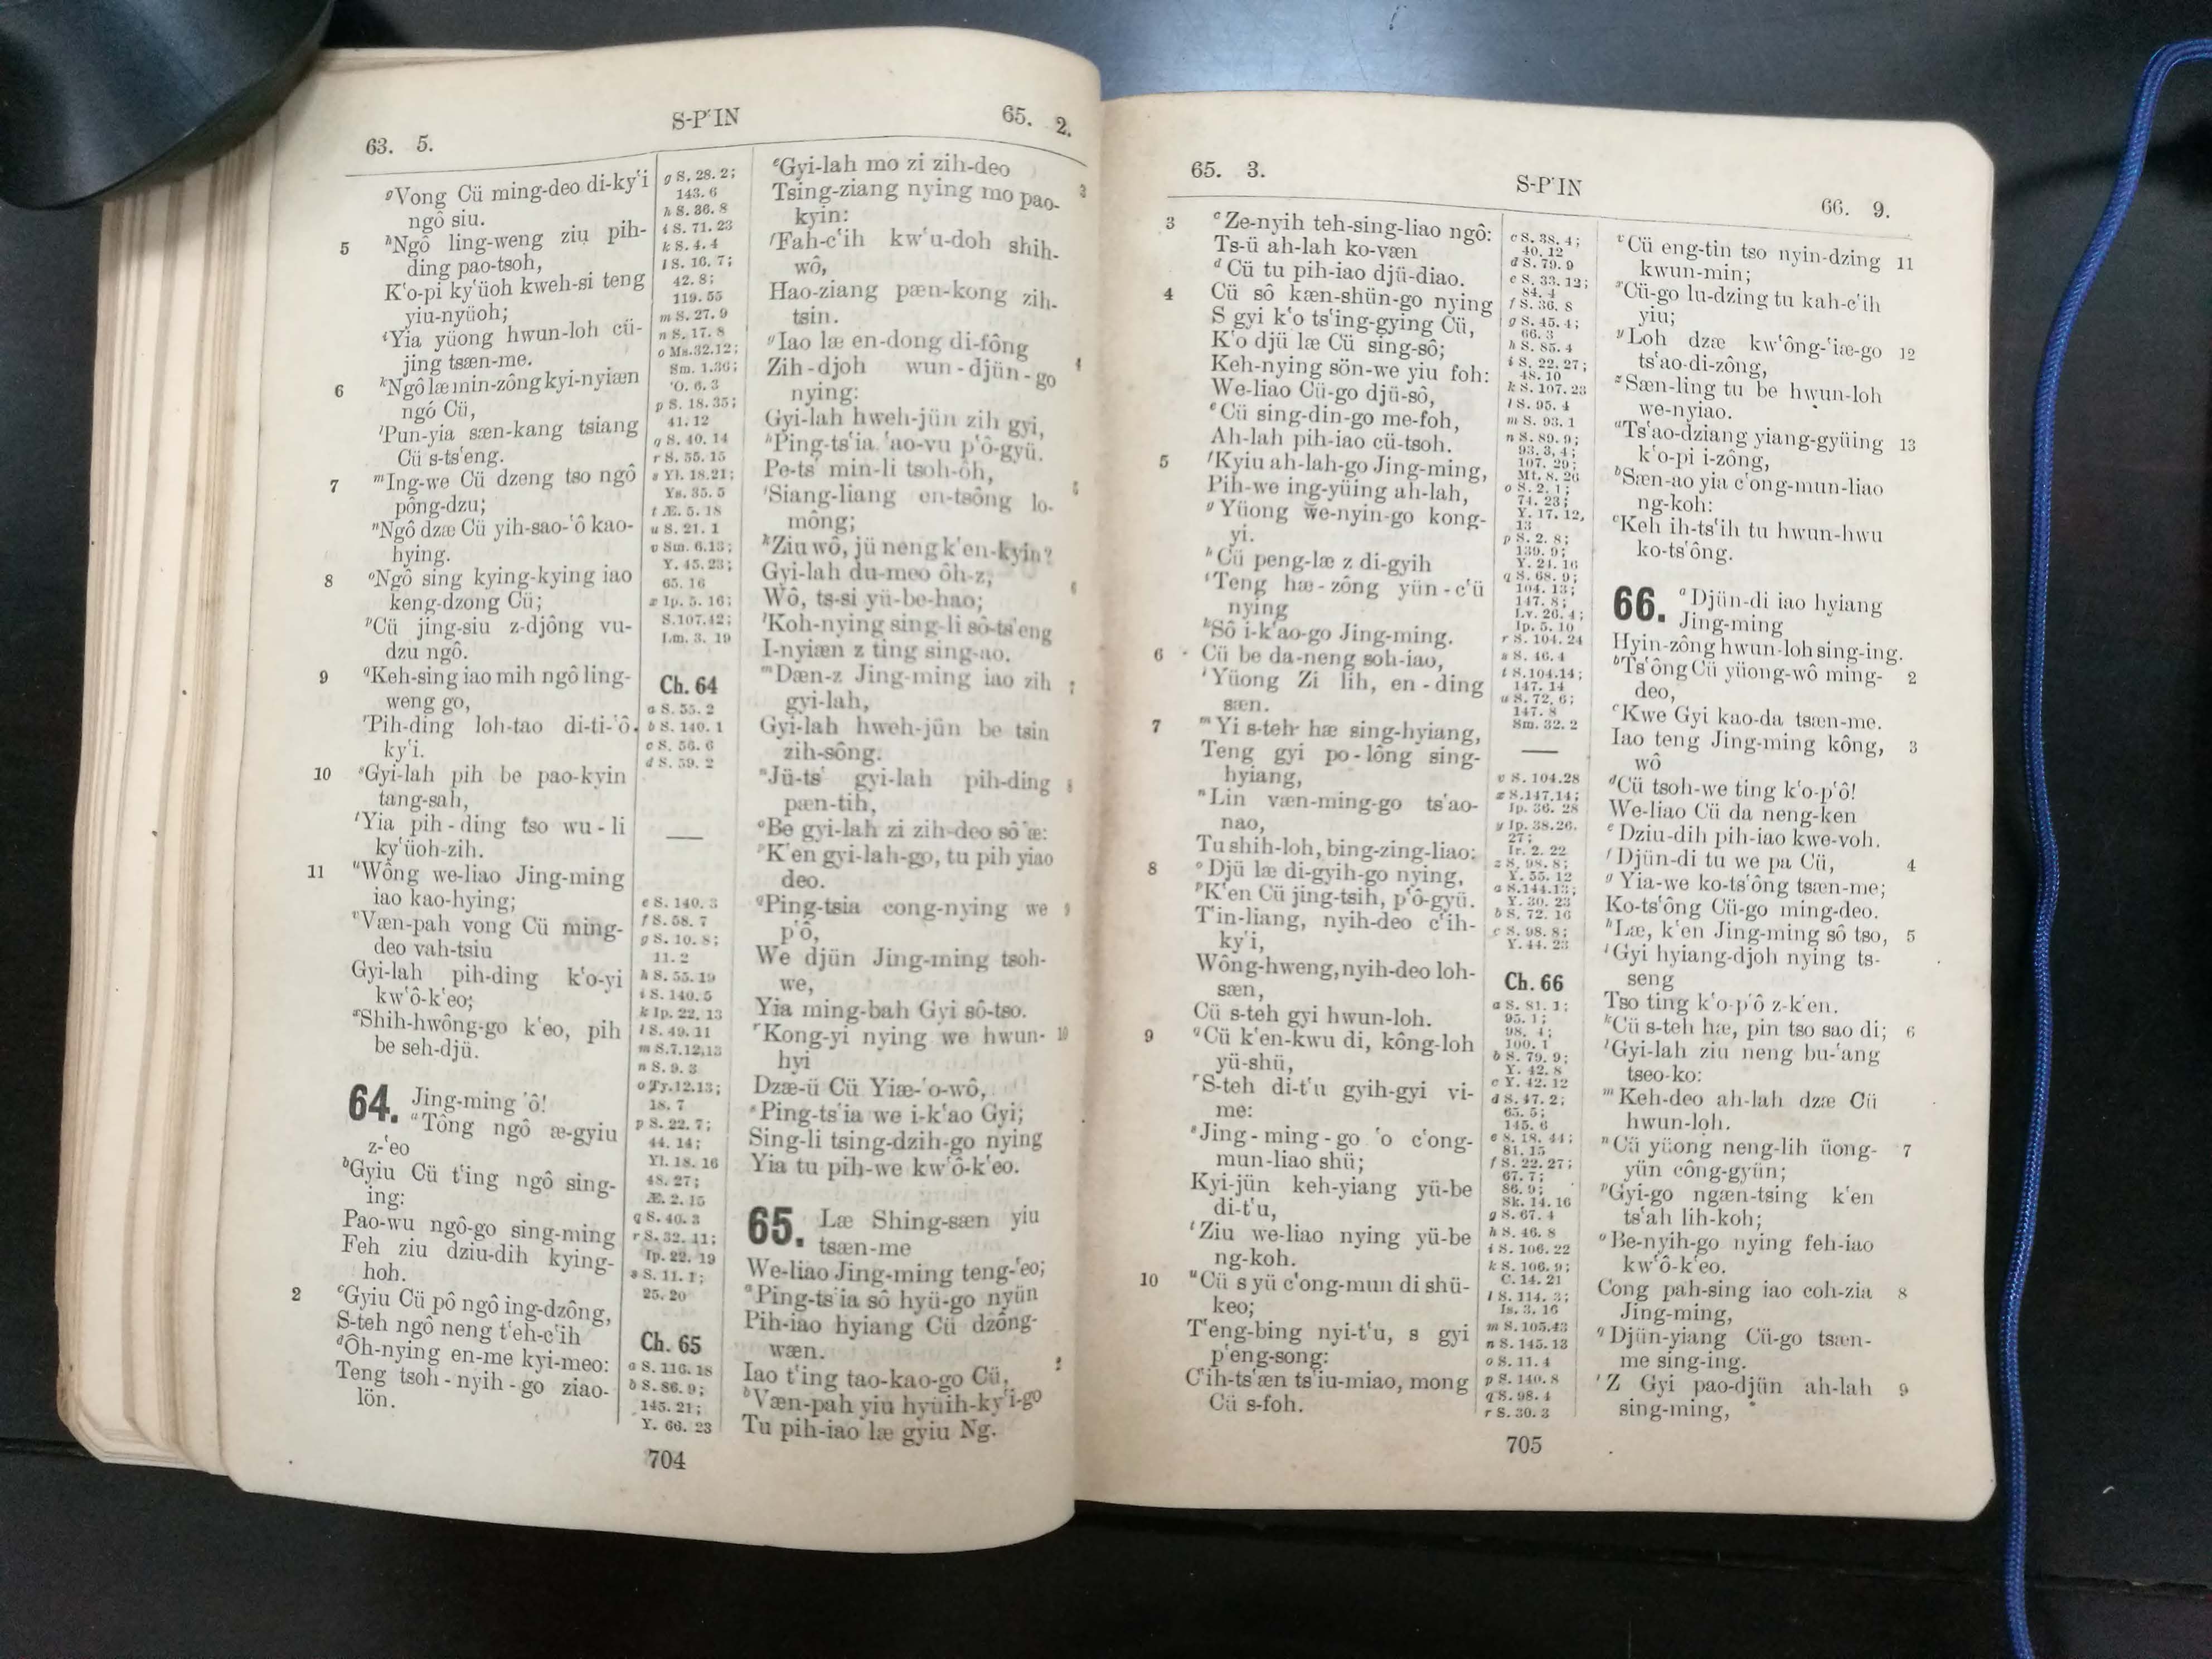 63. 5.
S-P'IN
65. 2.
gVong Cü ming-deo di-ky'i
ngô siu.
5 hNgô ling-weng ziu pih-
ding pao-tsoh,
K'o-pi ky'üoh kweh-si teng
yiu-nyüoh;
iYia yüong hwun-loh cü-
jing tsæn-me.
6 kNgô læ min-zông kyi-nyiæn
ngô Cü,
lPun-yia sæn-kang tsiang
Cü s-ts'eng.
7 mIng-we Cü dzeng tso ngô
pông-dzu;
nNgô dzæ Cü yih-sao-'ô kao-
hying.
8 oNgô sing kying-kying iao
keng-dzong Cü;
pCü jing-siu z-djông vu-
dzu ngô.
9 qKeh-sing iao mih ngô ling-
weng go,
rPih-ding loh-tao di-ti-'ô
ky'i.
10 sGyi-lah pih be pao-kyin
tang-sah,
tYia pih-ding tso wu-li
ky'üoh-zih.
11 uWông we-liao Jing-ming
iao kao-hying;
vVæn-pah vong Cü ming-
deo vah-tsiu
Gyi-lah pih-ding k'o-yi
kw'ô-k'eo;
xShih-hwông-go k'eo, pih
be seh-djü.
64. Jing-ming 'ô!
aTông ngô æ-gyiu
z-'eo
bGyiu Cü t'ing ngô sing-
ing:
Pao-wu ngô-go sing-ming
Feh ziu dziu-dih kying-
hoh.
2 cGyiu Cü pô ngô ing-dzông,
S-teh ngô neng t'eh-c'ih
dÔh-nying en-me kyi-meo:
Teng tsoh-nyih-go ziao-
lön.
g S. 28. 2;
143. 6
h S. 36. 8
i S. 71. 23
k S. 4. 4
l S. 16. 7;
42. 8;
119. 55
m S. 27. 9
n S. 17. 8
o Ms. 32. 12;
Sm. 1. 36;
'O. 6. 3
p S. 18. 35;
41. 12
q S. 40. 14
r S. 55. 15
s Yl. 18. 21;
Ys. 35. 5
t Æ. 5. 18
u S. 21. 1
v Sm. 6. 13;
Y. 45. 23;
65. 16
x Ip. 5. 16;
S. 107. 42;
Lm. 3. 19
Ch. 64
a S. 55. 2
b S. 140. 1
c S. 56. 6
d S. 59. 2
e S. 140. 3
f S. 58. 7
g S. 10. 8;
11. 2
h S. 55. 19
i S. 140. 5
k Ip. 22. 13
l S. 49. 11
m S. 7. 12, 13
n S. 9. 3
o Ty. 12. 13;
18. 7
p S. 22. 7;
44. 14;
Yl. 18. 16
48. 27;
Æ. 2. 15
q S. 40. 3
r S. 32. 11;
Ip. 22. 19
s S. 11. 1;
25. 20
Ch. 65
a S. 116. 18
b S. 86. 9;
145. 21;
Y. 66. 23
eGyi-lah mo zi zih-deo
Tsing-ziang nying mo pao- 3
kyin:
fFah-c'ih kw'u-doh shih-
wô,
Hao-ziang pæn-kong zih-
tsin.
gIao læ en-dong di-fông
Zih-djoh wun-djün-go 4
nying:
Gyi-lah hweh-jün zih gyi,
hPing-ts'ia 'ao-vu p'ô-gyü.
Pe-ts' min-li tsoh-ôh,
iSiang-liang en-tsông lo- 5
mông;
kZiu wô, jü neng k'en-kyin?
Gyi-lah du-meo ôh-z, 6
Wô, ts-si yü-be-hao;
lKoh-nying sing-li sô-ts'eng
I-nyiæn z ting sing-ao.
mDæn-z Jing-ming iao zih 7
gyi-lah,
Gyi-lah hweh-jün be tsin
zih-sông.
nJü-ts' gyi-lah pih-ding 8
pæn-tih,
oBe gyi-lah zi zih-deo sô 'æ:
pK'en gyi-lah-go, tu pih yiao
deo.
qPing-tsia cong-nying we 9
p'ô,
We djün Jing-ming tsoh-
we,
Yia ming-bah Gyi sô-tso.
rKong-yi nying we hwun- 10
hyi
Dzæ-ü Cü Yiæ-'o-wô,
sPing-ts'ia we i-k'ao Gyi;
Sing-li tsing-dzih-go nying
Yia tu pih-we kw'ô-k'eo.
65. Læ Shing-sæn yiu
tsæn-me
We-liao Jing-ming teng-'eo;
aPing-ts'ia sô hyü-go nyün
Pih-iao hyiang Cü dzông-
wæn.
Iao t'ing tao-kao-go Cü, 2
bVæn-pah yiu hyüih-ky'i-go
Tu pih-iao læ gyiu Ng.
704
65. 3.
S-P'IN
66. 9.
3 cZe-nyih teh-sing-liao ngô:
Ts-ü ah-lah ko-væn
dCü tu pih-iao djü-diao.
4 Cü sô kæn-shün-go nying
S gyi k'o ts'ing-gying Cü,
K'o djü læ Cü sing-sô;
Keh-nying sön-we yiu foh:
We-liao Cü-go djü-sô,
eCü sing-din-go me-foh,
Ah-lah pih-iao cü-tsoh.
5 fKyiu ah-lah-go Jing-ming,
Pih-we ing-yüing ah-lah,
gYüong we-nyin-go kong-
yi.
hCü peng-læ z di-gyih
iTeng hæ-zông yün-c'ü
nying
kSô i-k'ao-go Jing-ming.
6 Cü be da-neng soh-iao,
lYüong Zi lih, en-ding
sæn.
7 mYi s-teh hæ sing-hyiang,
Teng gyi po-lông sing-
hyiang,
nLin væn-ming-go ts'ao-
nao,
Tu shih-loh, bing-zing-liao:
8 oDjü læ di-gyih-go nying,
pK'en Cü jing-tsih, p'ô-gyü.
T'in-liang, nyih-deo c'ih-
ky'i,
Wông-hweng, nyih-deo loh-
sæn,
Cü s-teh gyi hwun-loh.
9 qCü k'en-kwu di, kông-loh
yü-shü,
rS-teh di-t'u gyih-gyi vi-
me:
sJing-ming-go 'o c'ong-
mun-liao shü;
Kyi-jün keh-yiang yü-be
di-t'u,
tZiu we-liao nying yü-be
ng-koh.
10 uCü s yü c'ong-mun di shü-
keo;
T'eng-bing nyi-t'u, s gyi
p'eng-song:
C'ih-ts'æn ts'iu-miao, mong
Cü s-foh.
c S. 38. 4;
40. 12
d S. 79. 9
e S. 33. 12;
84. 4
f S. 36. 8
g S. 45. 4;
66. 3
h S. 85. 4
i S. 22. 27;
48. 10
k S. 107. 23
l S. 95. 4
m S. 93. 1
n S. 89. 9;
93. 3, 4;
107. 29;
Mt. 8. 26
o S. 2. 1;
74. 23;
Y. 17. 12,
13
p S. 2. 8;
139. 9;
Y. 24. 16
q S. 68. 9;
104. 13;
147. 8;
Lv. 26. 4;
Ip. 5. 10
r S. 104. 24
s S. 46. 4
t S. 104. 14;
147. 14
u S. 72. 6;
147. 8
Sm. 32. 2
v S. 104. 28
x S. 147. 14;
Ip. 36. 28
y Ip. 38. 26,
27;
Ir. 2. 22
z S. 98. 8;
Y. 55. 12
a S. 144. 13;
Y. 30. 23
b S. 72. 16
c S. 98. 8;
Y. 44. 23
Ch. 66
a S. 81. 1;
95. 1;
98. 4;
100. 1
b S. 79. 9;
Y. 42. 8
c Y. 42. 12
d S. 47. 2;
65. 5;
145. 6
e S. 18. 44;
81. 15
f S. 22. 27;
67. 7;
86. 9;
Sk. 14. 16
g S. 67. 4
h S. 46. 8
i S. 106. 22
k S. 106. 9;
C. 14. 21
l S. 114. 3;
Is. 3. 16
m S. 105. 43
n S. 145. 13
o S. 11. 4
p S. 140. 8
q S. 98. 4
r S. 30. 3
vCü eng-tin tso nyin-dzing 11
kwun-min;
xCü-go lu-dzing tu kah-c'ih
yiu;
yLoh dzæ kw'ông-'iæ-go 12
ts'ao-di-zông,
zSæn-ling tu be hwun-loh
we-nyiao.
aTs'ao-dziang yiang-gyüing 13
k'o-pi i-zông,
bSæn-ao yia c'ong-mun-liao
ng-koh:
cKeh ih-ts'ih tu hwun-hwu
ko-ts'ông.
66. aDjün-di iao hyiang
Jing-ming
Hyin-zông hwun-loh sing-ing.
bTs'ông Cü yüong-wô ming- 2
deo,
cKwe Gyi kao-da tsæn-me.
Iao teng Jing-ming kông, 3
wô
dCü tsoh-we ting k'o-p'ô!
We-liao Cü da neng-ken
eDziu-dih pih-iao kwe-voh.
fDjün-di tu we pa Cü, 4
gYia-we ko-ts'ông tsæn-me;
Ko-ts'ông Cü-go ming-deo.
hLæ, k'en Jing-ming sô tso, 5
iGyi hyiang-djoh nying ts-
seng
Tso ting k'o-p'ô z-k'en.
kCü s-teh hæ, pin tso sao di; 6
lGyi-lah ziu neng bu-'ang
tseo-ko:
mKeh-deo ah-lah dzæ Cü
hwun-loh.
nCü yüong neng-lih üong- 7
yün công-gyün;
pGyi-go ngæn-tsing k'en
ts'ah lih-koh;
oBe-nyih-go nying feh-iao
kw'ô-k'eo.
Cong pah-sing iao coh-zia 8
Jing-ming,
qDjün-yiang Cü-go tsæn-
me sing-ing.
rZ Gyi pao-djün ah-lah 9
sing-ming,
705